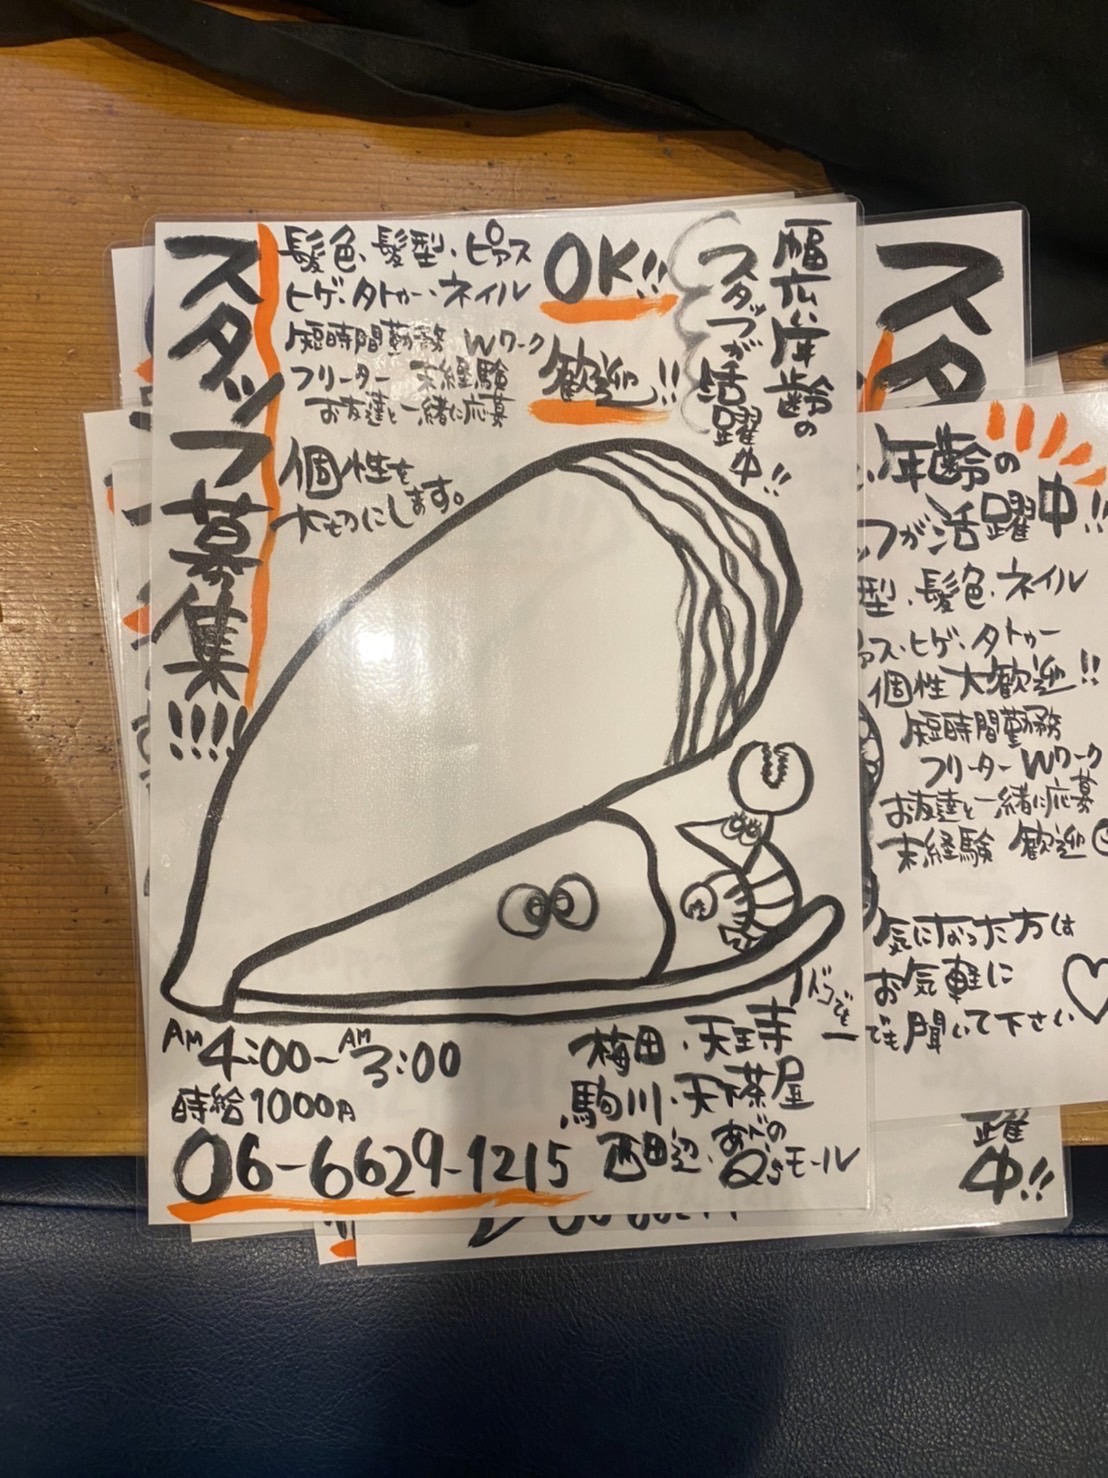 スタッフ募集!!!!
髪色、髪型・ピアス
ヒゲ・タトゥー・ネイル
OK!!
短時間勤務 Wワーク
フリーター 未経験
お友達と一緒に応募
歓迎!!
個性を
大切にします。
幅広い年齢の
スタッフが活躍中!!
AM4:00~AM3:00
時給1000円
06-6629-1215
ドコでも
梅田・天王寺
駒川・天下茶屋
西田辺・あべのQ'sモール
スタ
年齢の
フが活躍中!!
型、髪色、ネイル
アス・ヒゲ・タトゥー
個性大歓迎!!
短時間勤務
フリーター Wワーク
お友達と一緒に応募
未経験 歓迎
気になった方は
お気軽に
でも聞いて下さい
躍中!!